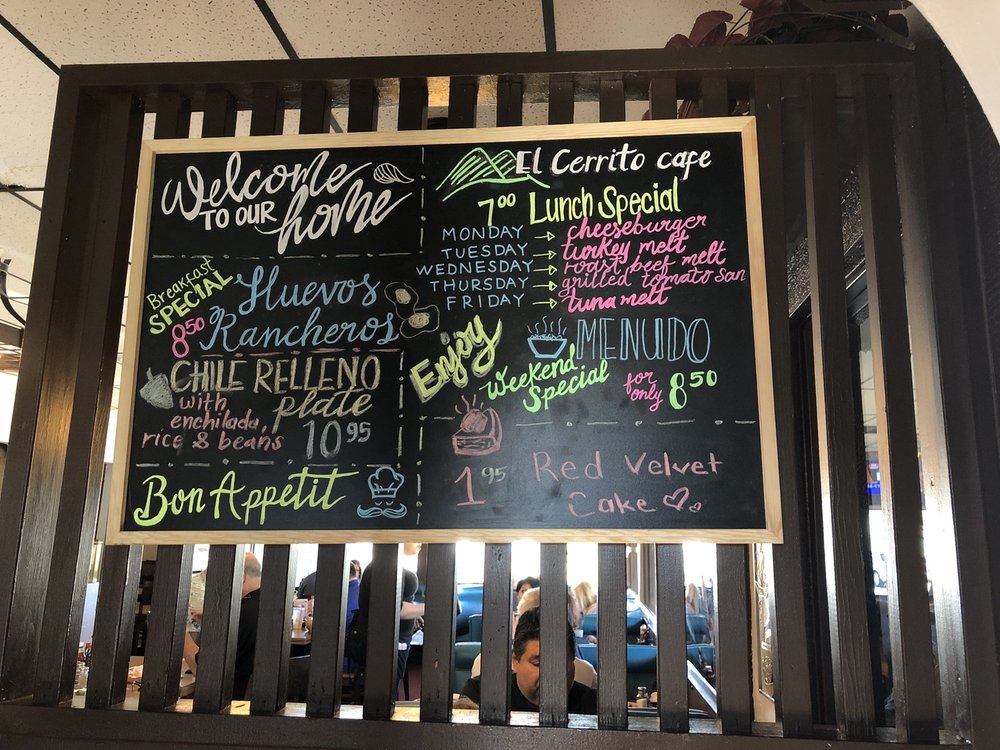 Welcome
TO OUR home
Breakfast
SPECIAL
8⁵⁰
Huevos
Rancheros
CHILE RELLENO
plate
with
enchilada,
rice & beans
10⁹⁵
Bon Appetit
El Cerrito cafe
7⁰⁰ Lunch Special
MONDAY → cheeseburger
TUESDAY → turkey melt
WEDNESDAY → roast beef melt
THURSDAY → grilled tomato san
FRIDAY → tuna melt
Enjoy
MENUDO
Weekend
Special
for
only 8⁵⁰
1⁹⁵
Red Velvet
Cake